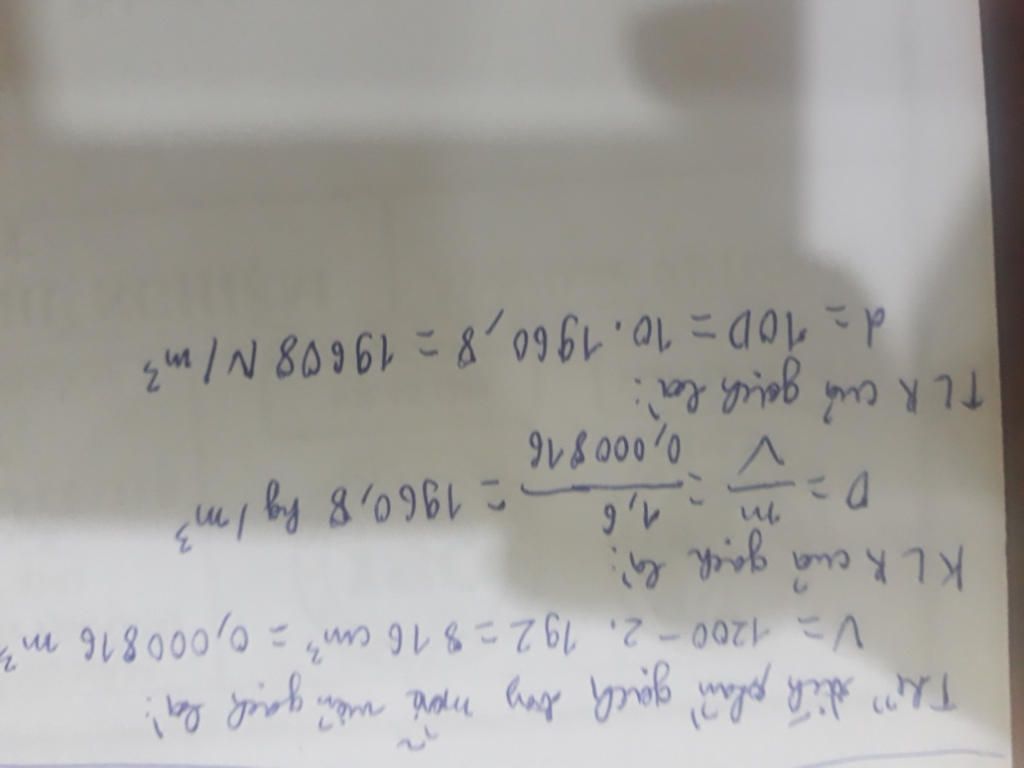 Thể tích phần gạch trong mỗi viên gạch là:
V = 1200 - 2. 192 = 816 cm³ = 0,000816 m³
KLR của gạch là:
D = m/V = 1,6/0,000816 = 1960,8 kg/m³
TLR của gạch là:
d = 10D = 10. 1960,8 = 19608 N/m³